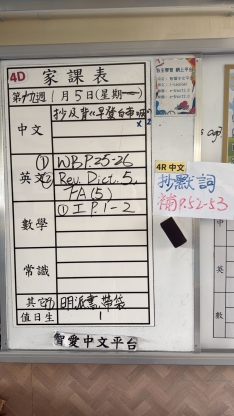 4D 家課表
第十九週1月5日(星期一)
中文 抄及背《早發白帝城》
x2
英文 ① WB P.25-26
② Rev. Dict. 5
TA (5)
數學 ① 工P.1-2
常識
其它 明派書,帶袋
值日生 1
智愛中文平台
4R 中文
抄默詞
補P.52-53
中
英
數